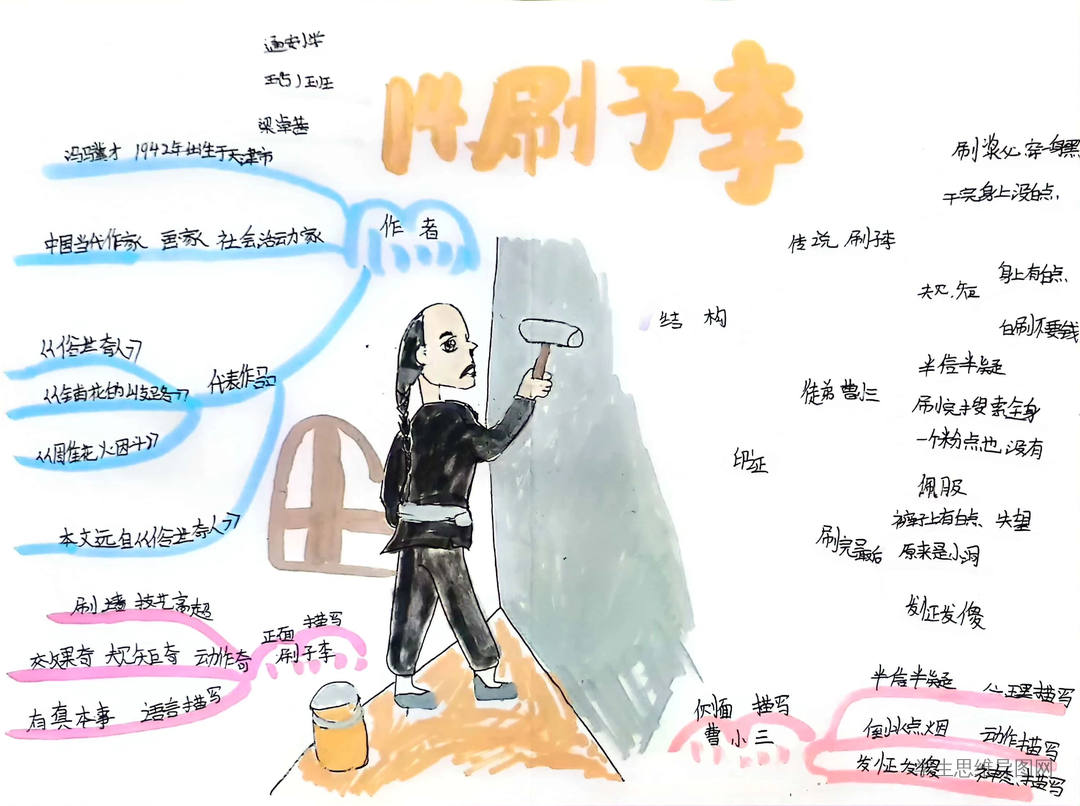 14刷子李
梁卓茜
冯骥才 1942年出生于天津市
作 者
中国当代作家 画家 社会活动家
代表作品
《俗世奇人》
《》
本文选自《俗世奇人》
正面 描写
刷子李
刷墙 技艺高超
效果奇 规矩奇 动作奇
有真本事 语言描写
结 构
传说 刷子李
刷浆必穿一身黑
干完身上没白点
规矩
身上有白点
白刷不要钱
印证
徒弟曹小三
半信半疑
刷完搜索全身
一个粉点也没有
佩服
刷完最后
裤子上有白点 失望
原来是小洞
发怔发傻
侧面 描写
曹小三
半信半疑 心理描写
倒水点烟 动作描写
发怔发傻 描写
学生思维导图网